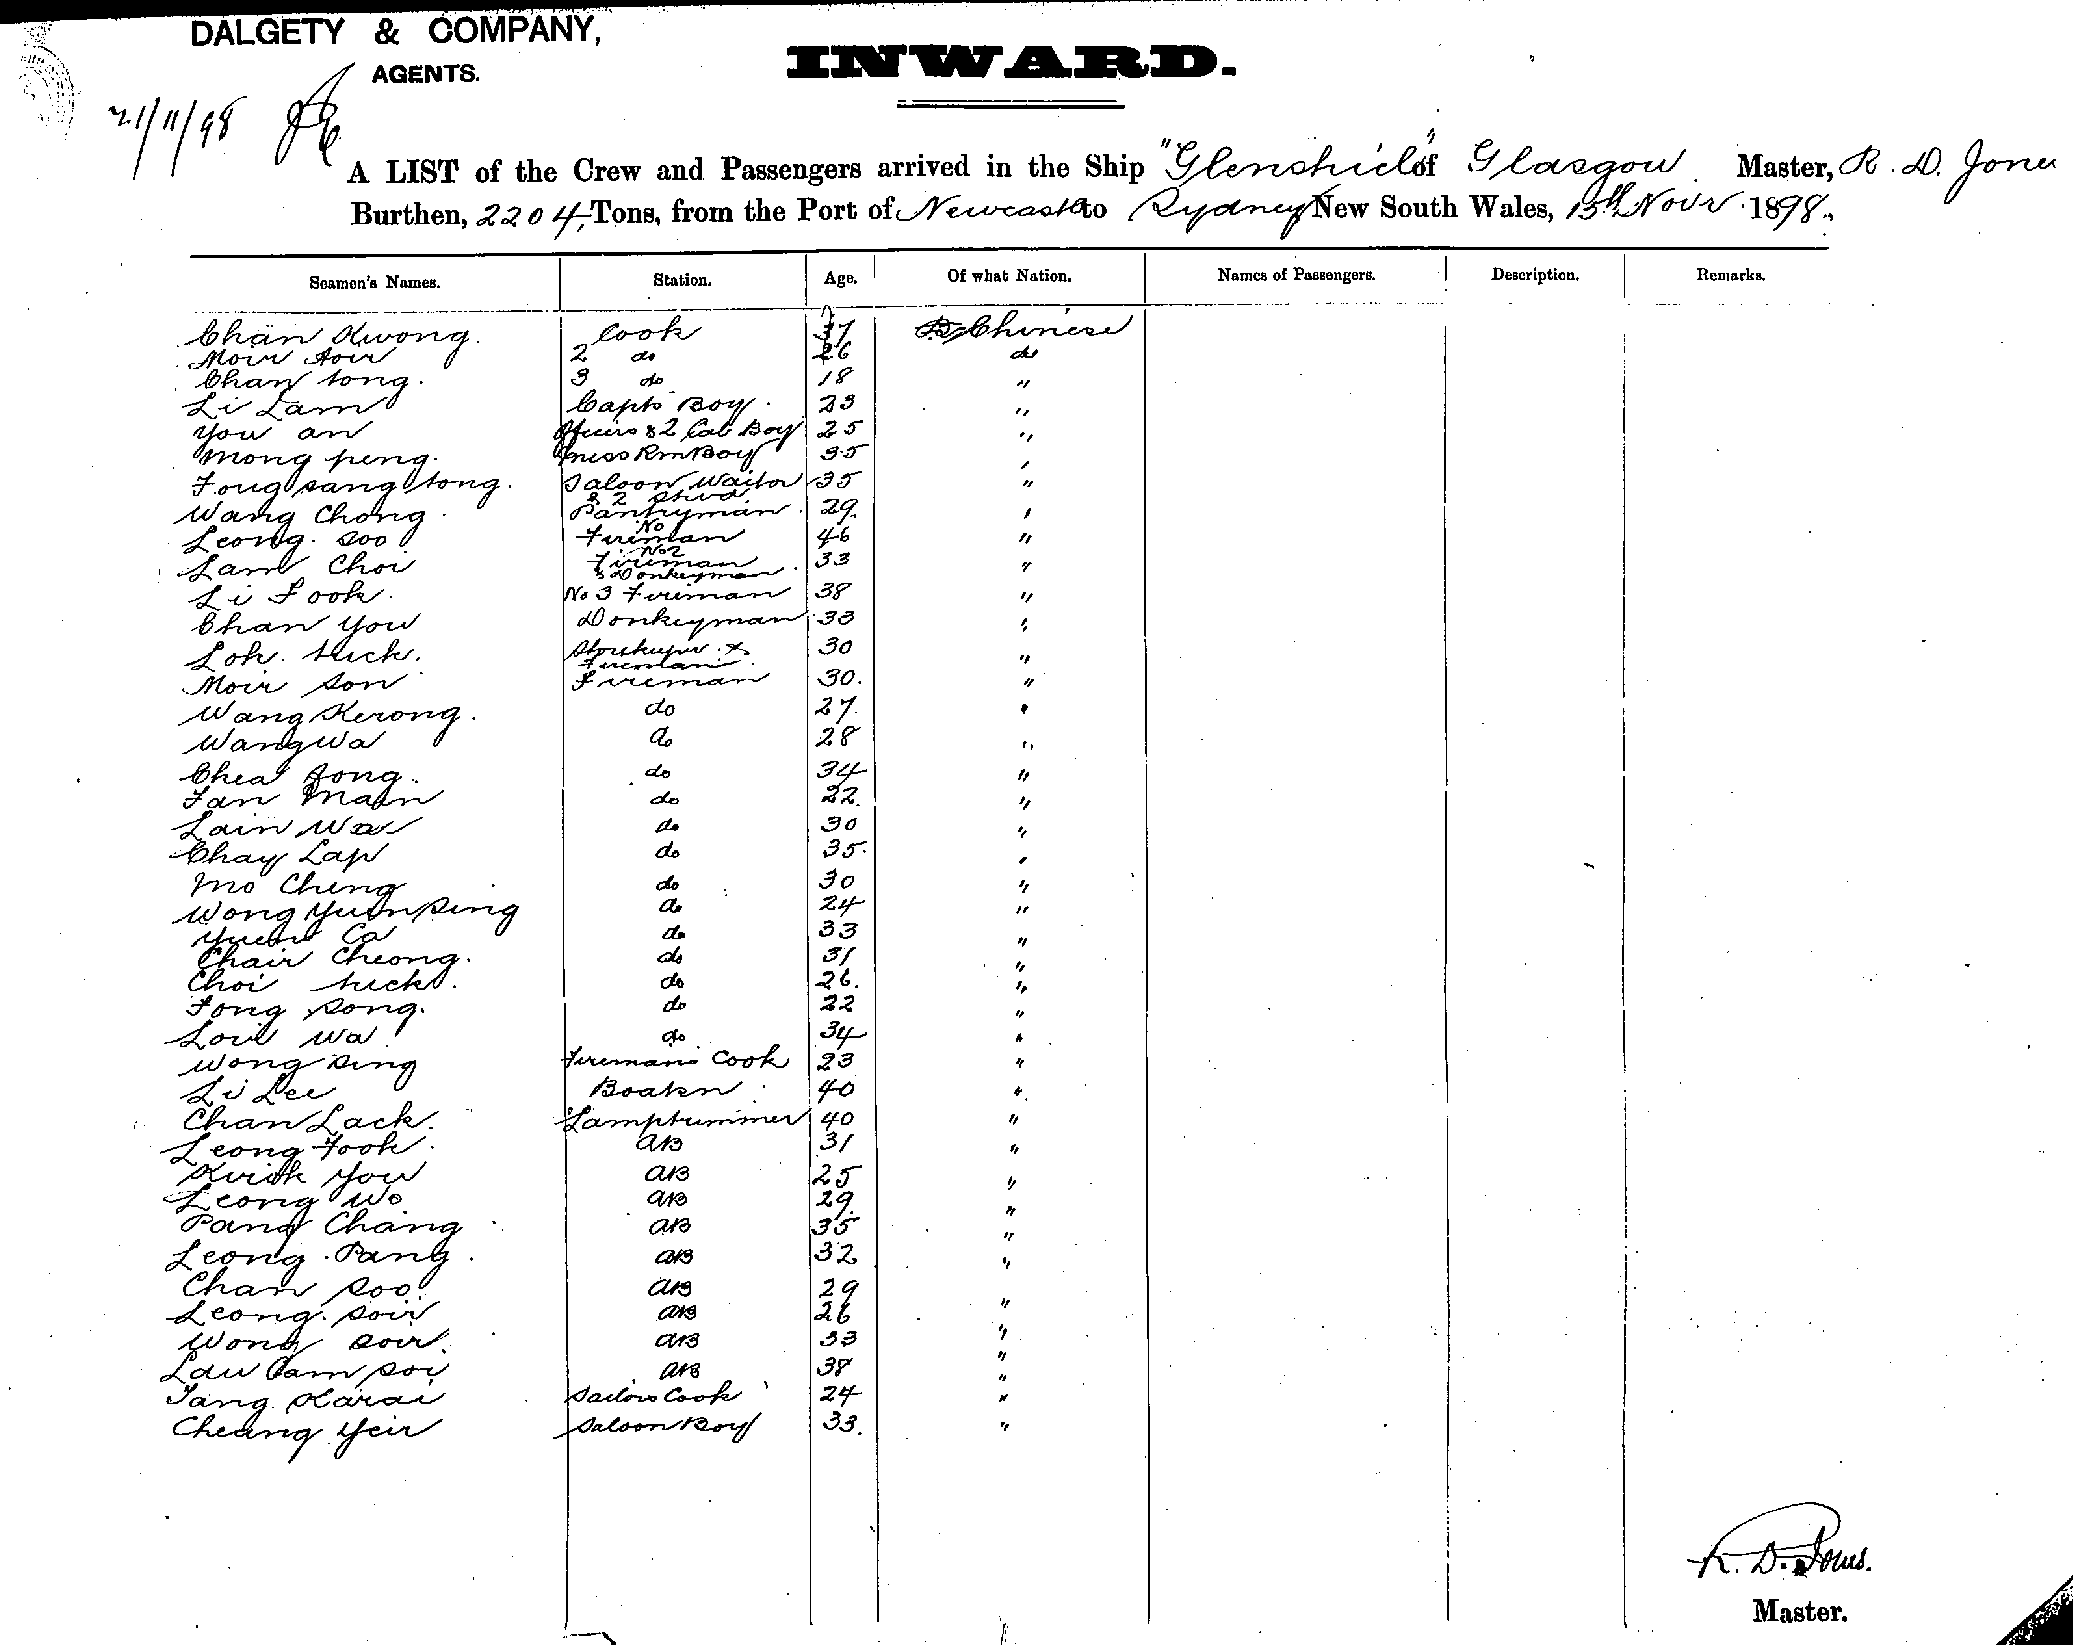 DALGETY & COMPANY,
AGENTS.
INWARD.
21/11/98
A LIST of the Crew and Passengers arrived in the Ship "Glenshiel" of Glasgow Master, R. D. Jones
Burthen, 2204 Tons, from the Port of Newcastle to Sydney New South Wales, 15th Novr 1898.
Seamen's Names. Station. Age. Of what Nation. Names of Passengers. Description. Remarks.
Chan Kwong. Cook 37 Chinese
Moir Aoir 2 do 26 do
Chan tong. 3 do 18 "
Li Lam Capts Boy. 23 "
You an Officers & 2 Cab Boy 25 "
Mong peng. Mess Rm Boy 35 "
Fong sang tong. Saloon Waiter 35 "
& 2 Stwd
Wang Chong Pantryman 29. "
Leong. soo No Fireman 46 "
Lam Choi No 2 Fireman 33 "
& Donkeyman
Li Fook. No 3 Fireman 38 "
Chan You Donkeyman 33 "
Loh. tuck. Storekeeper & 30 "
Fireman
Moir son Fireman 30. "
Wang Kerong. do 27. "
Wang Wa do 28 "
Chea Jong. do 34 "
Fan Main do 22. "
Lain Wa do 30 "
Chay Lap do 35. "
Mo Cheng do 30 "
Wong Yuen sing do 24 "
Yuen Ca do 33 "
Chair Cheong. do 31 "
Choi tuck. do 26. "
Fong song. do 22 "
Loui Wa do 34 "
Wong sing Firemans Cook 23 "
Li Lee Boatsn 40 "
Chan Lack. Lamptrimmer 40 "
Leong Fook. AB 31 "
Kwok You AB 25 "
Leong Wo AB 29. "
Pang Chang AB 35 "
Leong. Pang. AB 32 "
Chan soo. AB 29 "
Leong. soir AB 26 "
Wong soir. AB 33 "
Lau Cam soi AB 38 "
Tang Karai Sailors Cook 24 "
Cheang Yeir Saloon Boy 33. "
R. D. Jones.
Master.